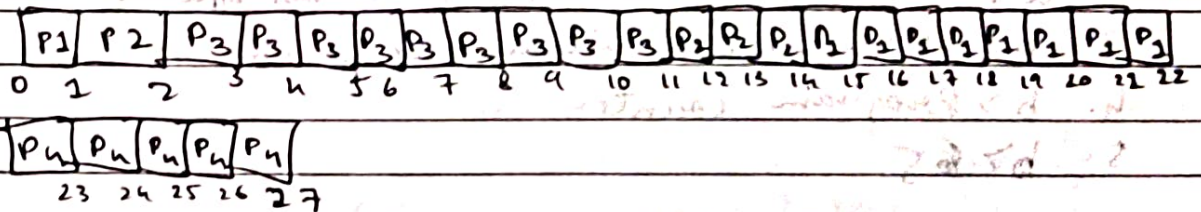 P1 P2 P3 P3 P3 P3 P3 P3 P3 P3 P3 P2 P2 P2 P1 P1 P1 P1 P1 P1 P1 P1
0 1 2 3 4 5 6 7 8 9 10 11 12 13 14 15 16 17 18 19 20 21 22
P4 P4 P4 P4 P4
23 24 25 26 27